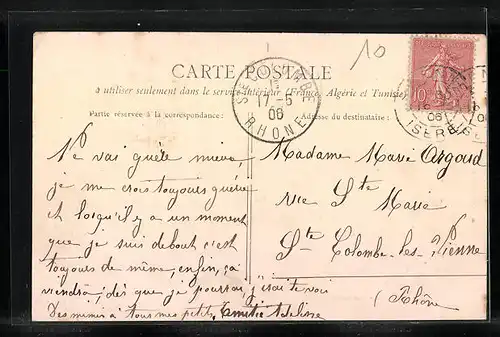 10
CARTE POSTALE
à utiliser seulement dans le service intérieur (France, Algérie et Tunisie)
Partie réservée à la correspondance:
Adresse du destinataire:
STE COLOMBE
17-5
06
RHONE
10
06
ISERE
Ne vais guère mieux,
je me crois toujours guérie
et lorsqu'il y a un moment
que je suis debout c'est
toujours de même, enfin, ça
viendra, dès que je pourrai j'irai te voir
Des mimis à tous mes petits, Emilie
Madame Marie Argoud
rue Ste
Marie
Ste Colombe-les-Vienne
(Rhône